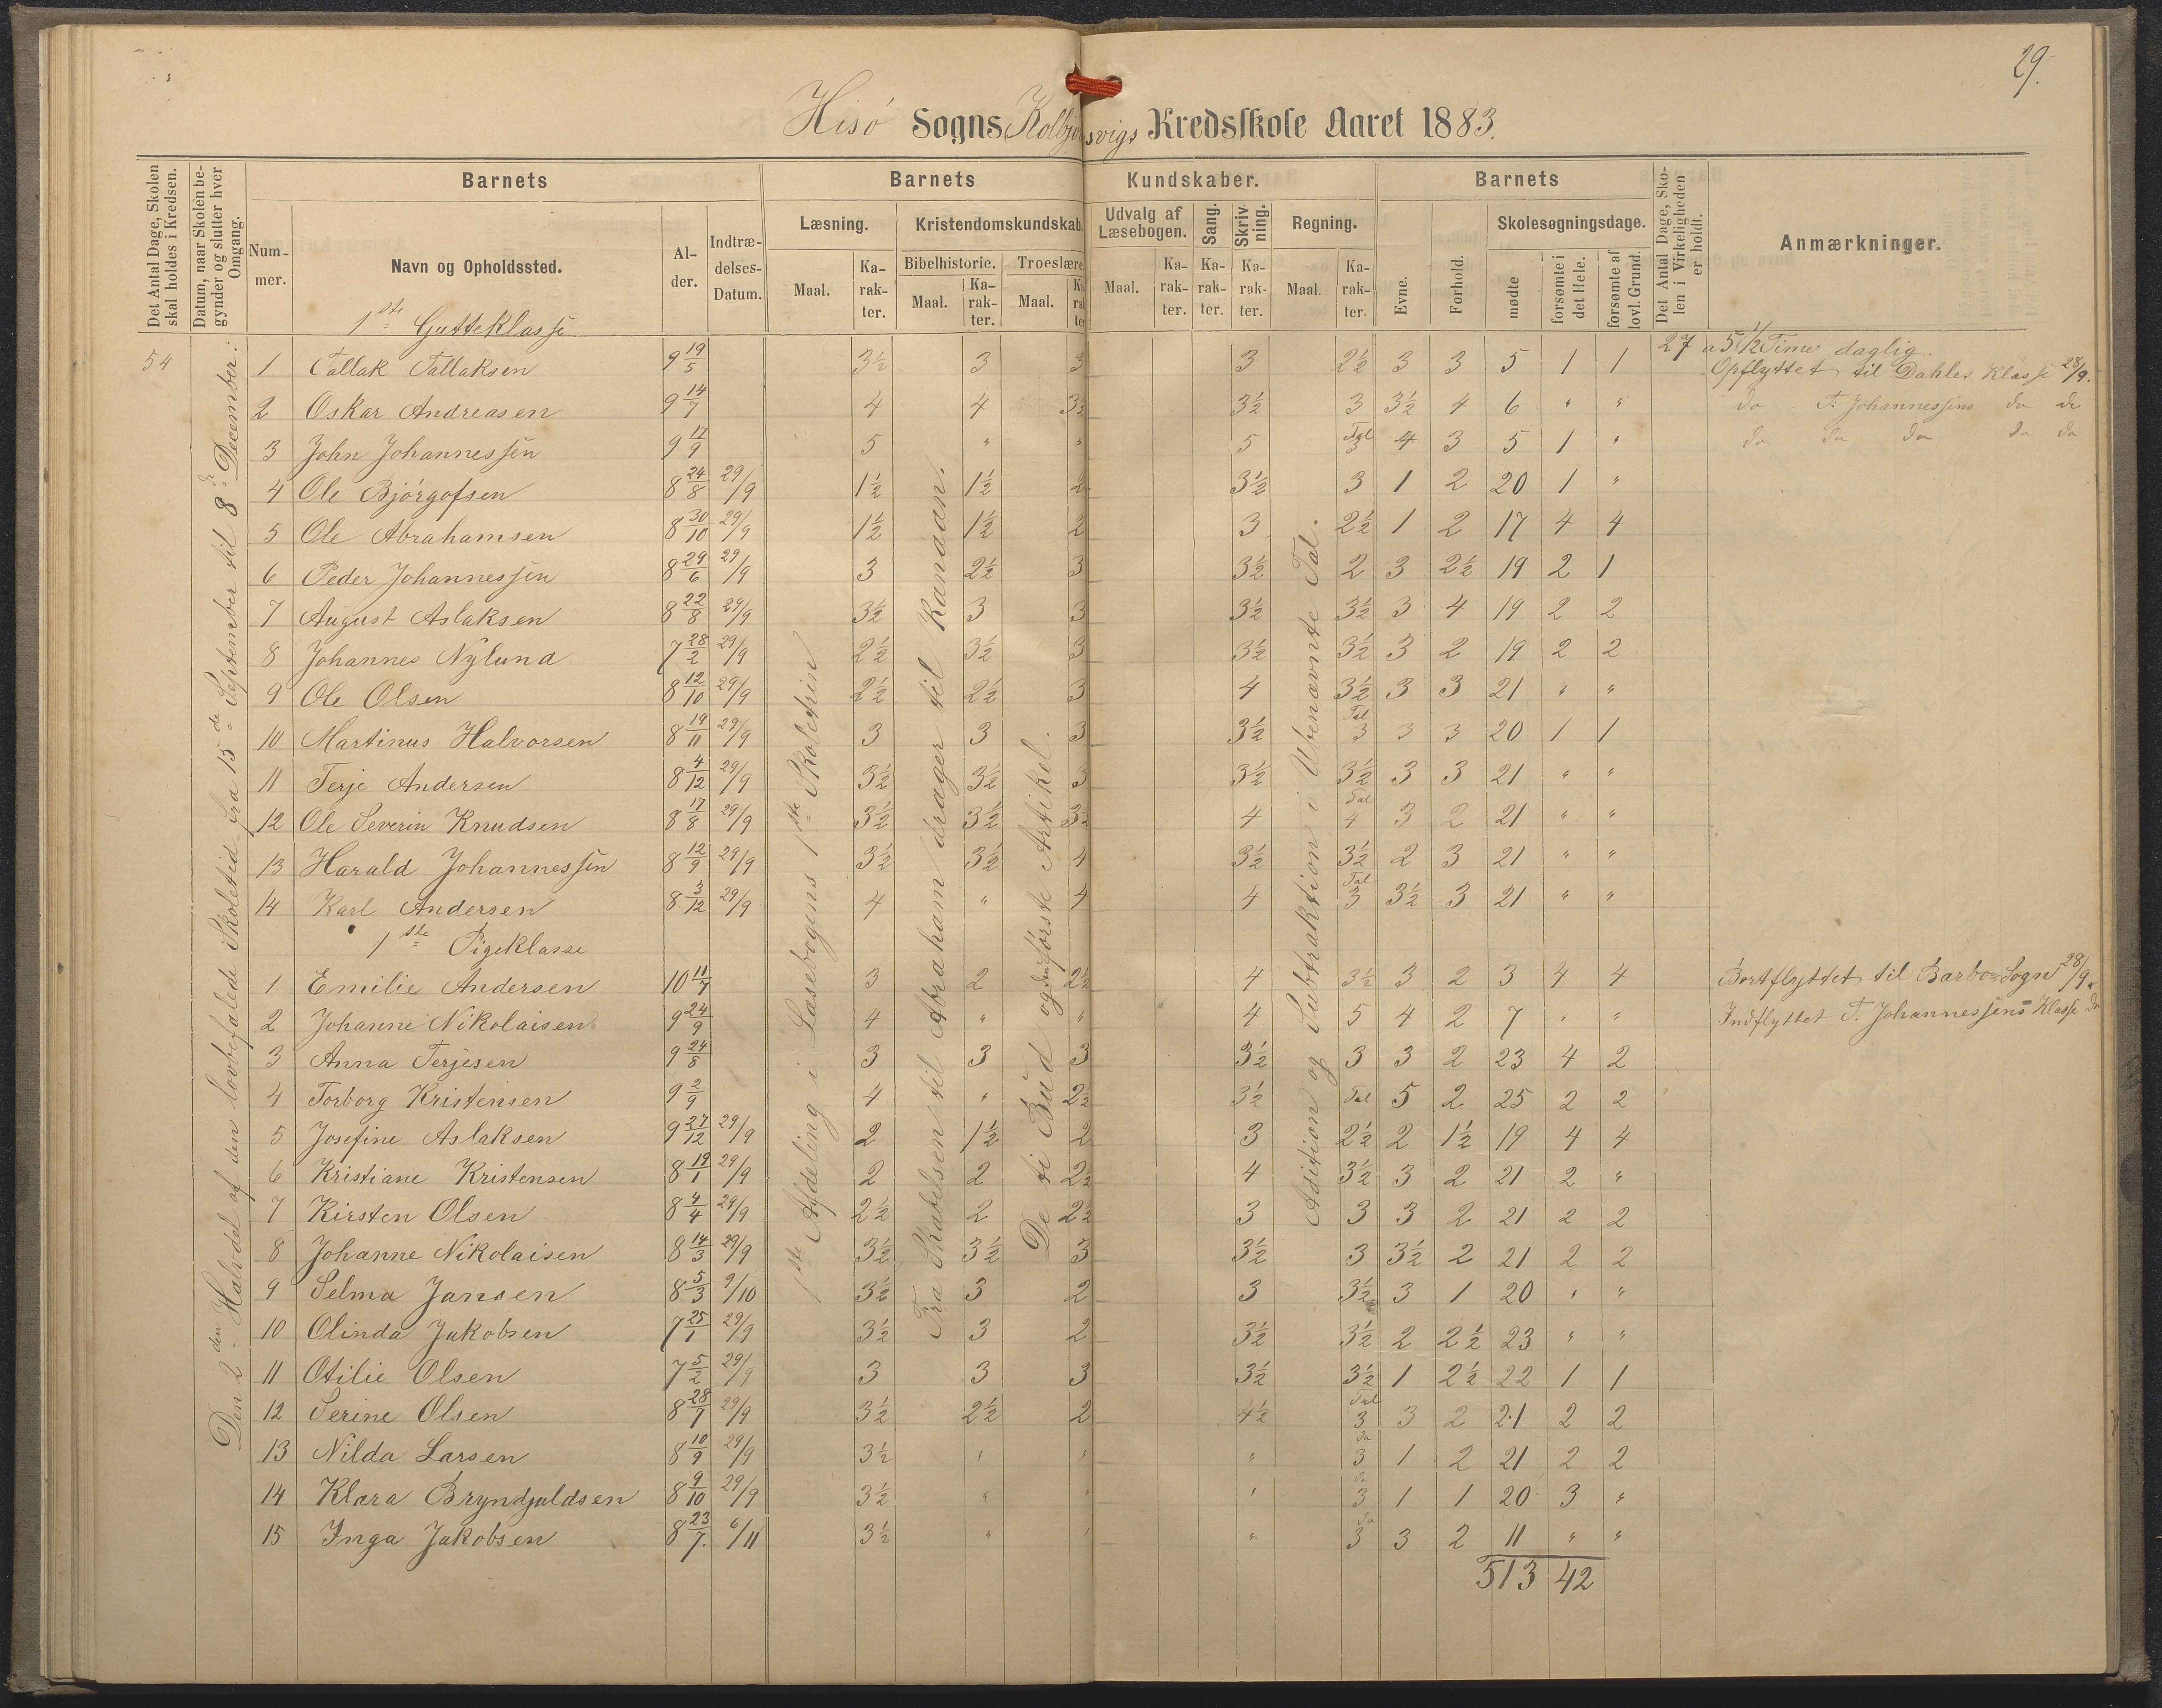 29.
Hisö Sogns Kolbjørnsvigs Kredsskole Aaret 1883.
Det Antal Dage, Skolen skal holdes i Kredsen.
Datum, naar Skolen begynder og slutter hver Omgang.
Barnets
Barnets
Kundskaber.
Barnets
Det Antal Dage, Skolen i Virkeligheden er holdt.
Anmærkninger.
Nummer.
Navn og Opholdssted.
Alder.
Indtrædelses-Datum.
Læsning.
Kristendomskundskab.
Udvalg af Læsebogen.
Sang.
Skrivning.
Regning.
Evne.
Forhold.
Skolesøgningsdage.
Bibelhistorie.
Troeslære.
Maal.
Karakter.
Maal.
Karakter.
Maal.
Maal.
Karakter.
Karakter.
Karakter.
Maal.
Karakter.
mødte
forsømte i det Hele.
forsømte af lovl. Grund.
1ste Gutteklasse
54
Den 2den Halvdel af den lovbefalede Skoletid fra 15de September til 8de December.
1ste Afdeling i Læsebogens 1ste Skoletrin
Fra Skabelsen til Abraham drager til Kanaan.
De ti Bud og den første Artikel.
Adition og Subtraktion i Ubenævnte Tal.
27 a 5 1/2 Time daglig.
1 Tallak Tallaksen 9 19/5 3½ 3 3 3 2½ 3 3 5 1 1 Opflyttet til Dahles Klasse 28/9.
2 Oskar Andreasen 9 14/7 4 4 3½ 3½ 3 3½ 4 6 " " do T. Johannessens do do
3 John Johannessen 9 11/9 5 " " 5 Tal 3 4 3 5 1 " do do do do do
4 Ole Bjørgofsen 8 24/8 29/9 1½ 1½ 2 3½ 3 1 2 20 1 "
5 Ole Abrahamsen 8 30/10 29/9 1½ 1½ 2 3 2½ 1 2 17 4 4
6 Peder Johannessen 8 29/6 29/9 3 2½ 3 3½ 2 3 2½ 19 2 1
7 August Aslaksen 8 22/8 29/9 3½ 3 3 3½ 3½ 3 4 19 2 2
8 Johannes Nylund 7 28/2 29/9 2½ 3½ 3 3½ 3½ 3 2 19 2 2
9 Ole Olsen 8 12/10 29/9 2½ 2½ 3 4 3½ 3 3 21 " "
10 Martinus Halvorsen 8 19/11 29/9 3 3 3 3½ Tal 3 3 3 20 1 1
11 Terje Andersen 8 4/12 29/9 3½ 3½ 3 3½ 3½ 3 3 21 " "
12 Ole Severin Knudsen 8 17/8 29/9 3½ 3½ 3½ 4 Tal 4 3 2 21 " "
13 Harald Johannessen 8 12/9 29/9 3½ 3½ 4 3½ 3½ 2 3 21 " "
14 Karl Andersen 8 3/12 29/9 4 " 4 4 Tal 3 3½ 3 21 " "
1ste Pigeklasse
1 Emilie Andersen 10 11/7 3 2 2½ 4 3½ 3 2 3 4 4 Bortflyttet til Barbo Sogn 28/9.
2 Johanne Nikolaisen 9 24/9 4 " " 4 5 4 2 7 " " Indflyttet T. Johannessens Klasse do
3 Anna Terjesen 9 24/8 3 3 3 3½ 3 3 2 23 4 2
4 Torborg Kristensen 9 2/9 4 " 2½ 3½ Tal 5 2 25 2 2
5 Josefine Aslaksen 9 27/12 29/9 2 1½ 2 3 2½ 2 1½ 19 4 4
6 Kristiane Kristensen 8 19/1 29/9 2 2 2½ 4 3½ 3 2 21 2 "
7 Kirsten Olsen 8 4/4 29/9 2½ 2 2½ 3 3 3 2 21 2 2
8 Johanne Nikolaisen 8 14/3 29/9 3½ 3½ 3 3½ 3 3½ 2 21 2 2
9 Selma Jansen 8 5/3 9/10 3½ 3 2 3 3½ 3 1 20 " "
10 Olinda Jakobsen 7 25/1 29/9 3½ 3 2 3½ 3½ 2 2½ 23 " "
11 Otilie Olsen 7 5/2 29/9 3 3 3 3½ 3½ 1 2½ 22 1 1
12 Serine Olsen 8 28/7 29/9 3½ 2½ 2 4½ Tal 3 3 2 21 2 2
13 Nilda Larsen 8 10/9 29/9 3½ " " " do 3 1 2 21 2 2
14 Klara Bryndjuldsen 8 9/10 29/9 3½ " " " do 3 1 1 20 3 "
15 Inga Jakobsen 8 23/7. 6/11 3½ " " " do 3 3 2 11 " "
513 42